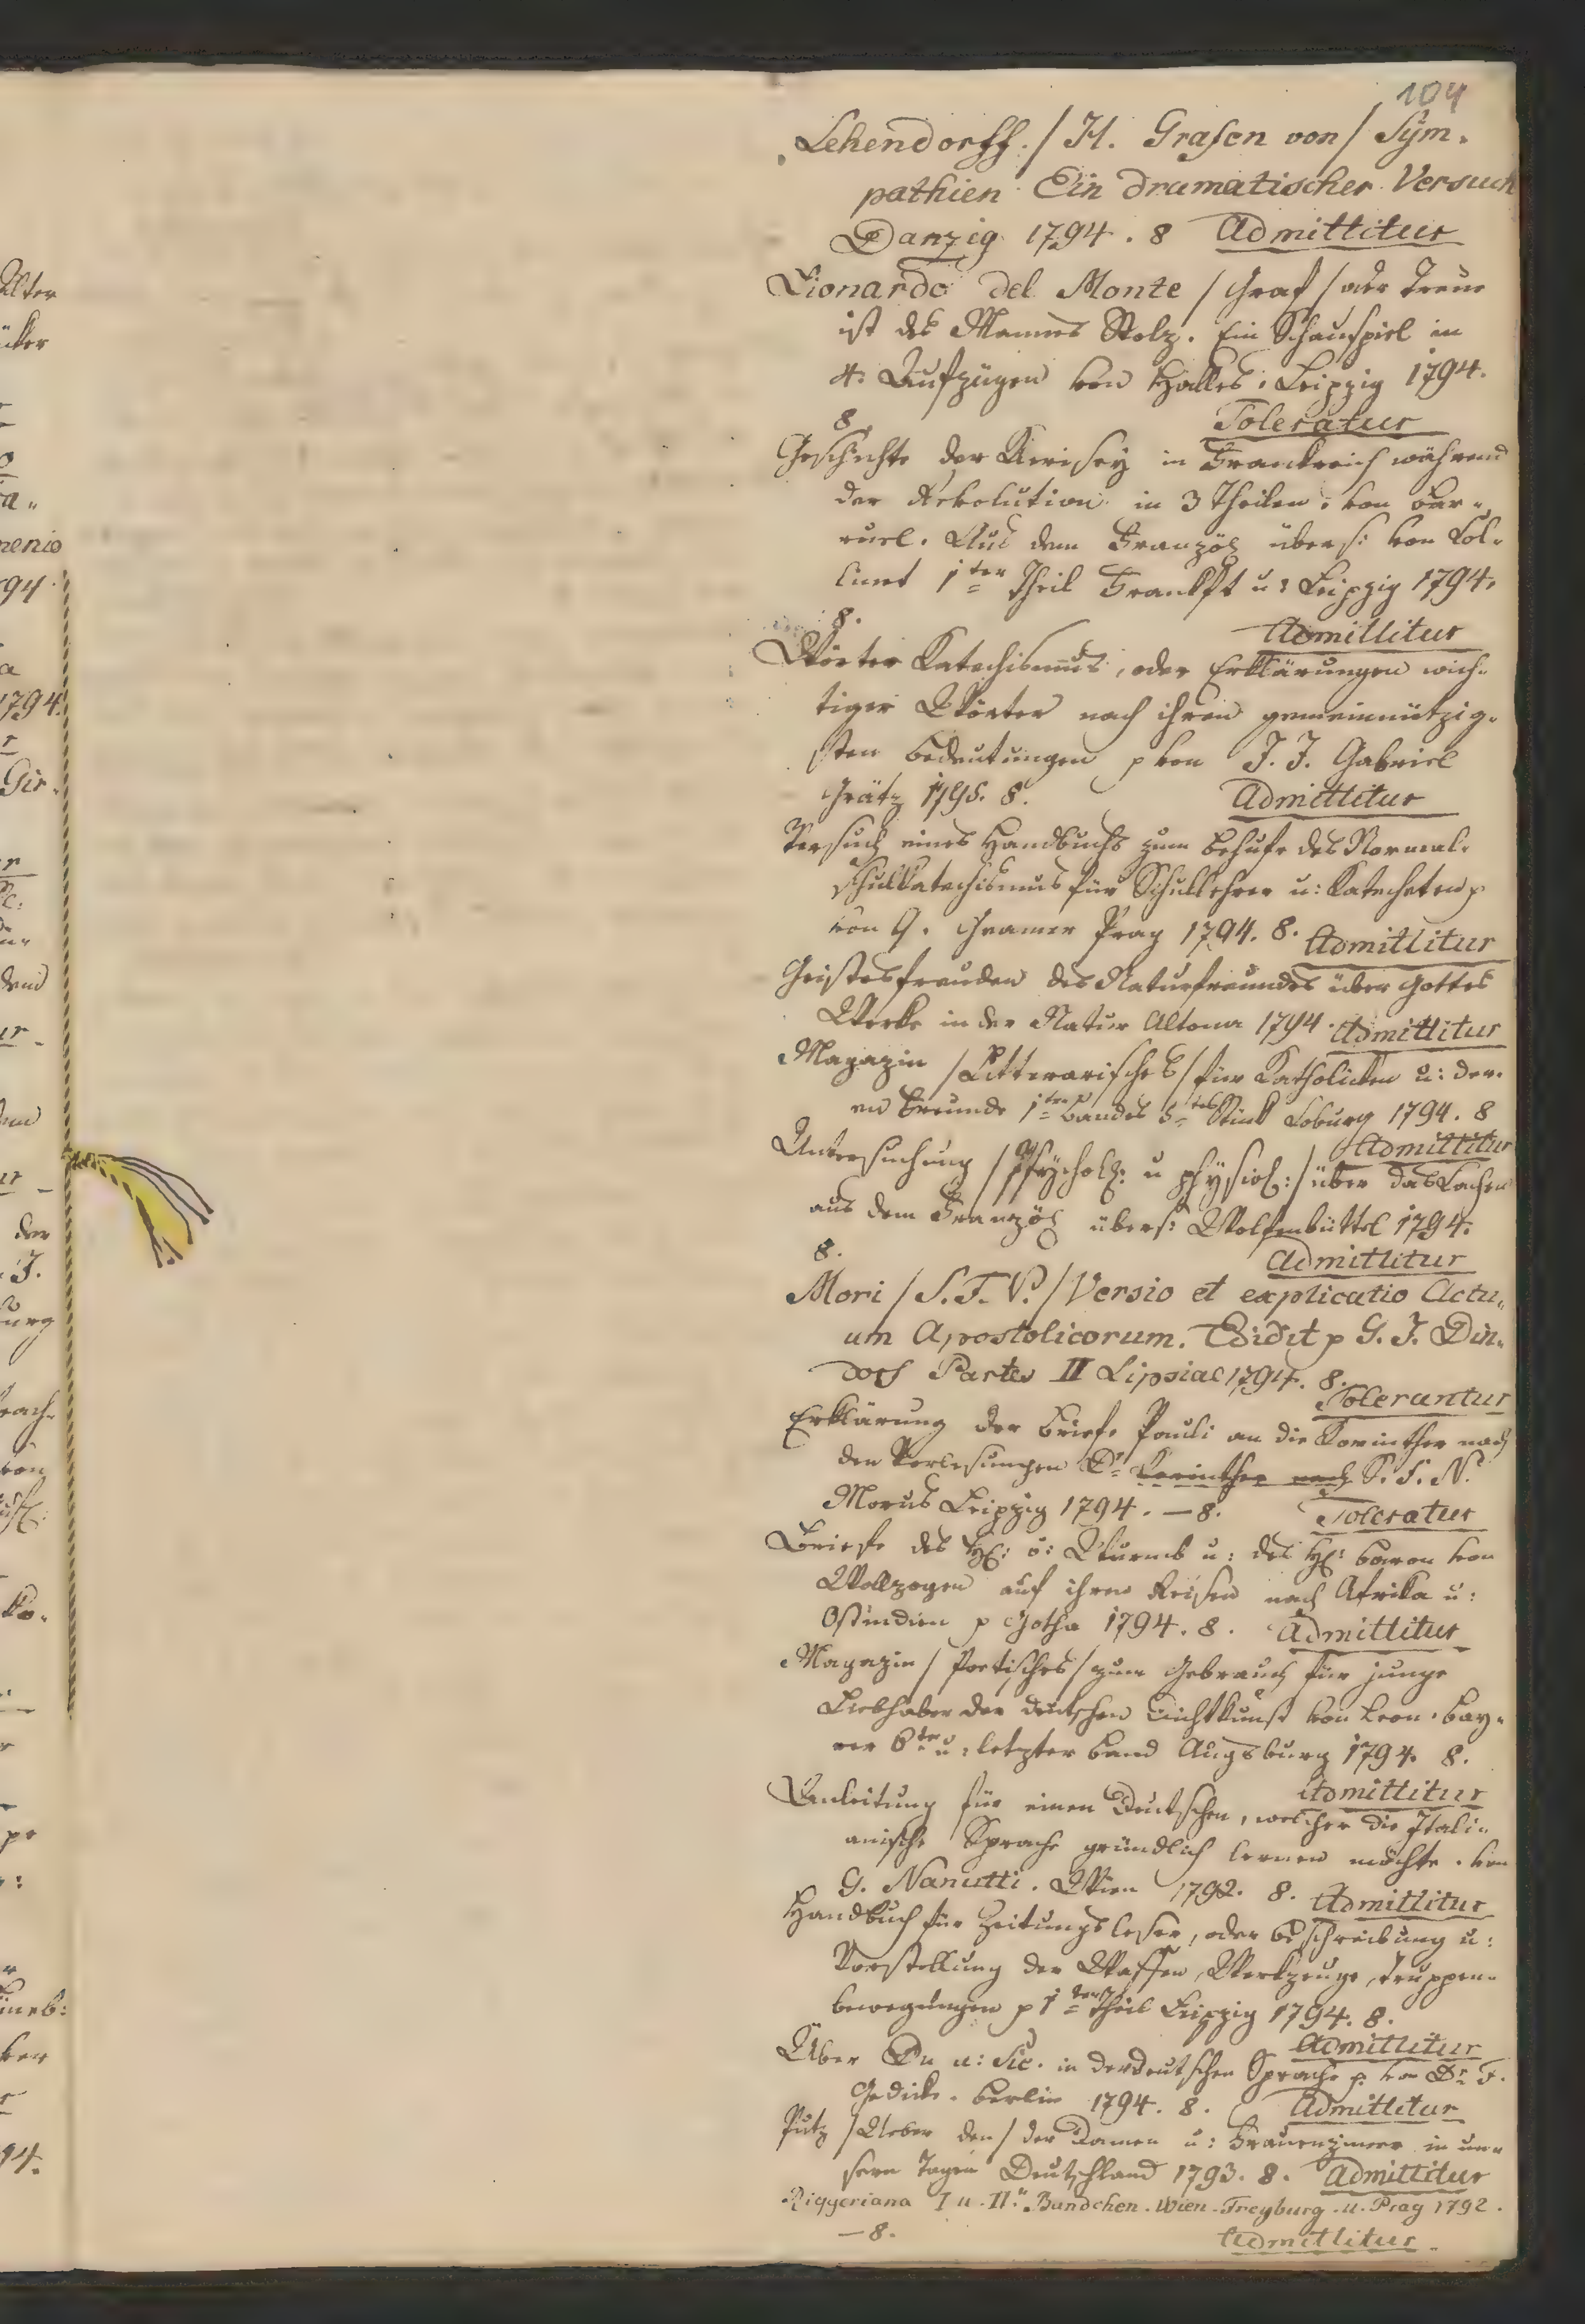 104
Lehendorff. / H. Grafen von / Sÿm-
pathien Ein dramatischer Versuch
Danzig 1794. 8 Admittitur
Lionardo del Monte / Graf / oder Treue
ist des Mannes Stolz. Ein Schauspiel in
4. Aufzügen von Halles. Leipzig 1794.
8. Toleratur
Geschichte der Klerisey in Frankreich während
der Revolution in 3 Theilen. von Bar-
ruel. Aus dem Französ übers: von Col-
linet 1ter Theil Frankft u: Leipzig 1794.
8. Admittitur
Wörter Katechismus, oder Erklärungen wich-
tiger Wörter nach ihren gemeinnützig-
sten Bedeutungen p von J. J. Gabriel
Grätz 1795. 8. Admittitur
Versuch eines Handbuchs zum Behufe des Normal-
schulkatechismus für Schullehrer u: Katecheten p
von G. Gramer Prag 1794. 8. Admittitur
Geistesfreuden des Naturfreundes über Gottes
Werke in der Natur Altona 1794. Admittitur
Magazin / Litterarisches / für Katholicken u: der-
en Freunde 1ten Bandes 5tes Stück Coburg 1794. 8
Admittitur
Untersuchung / Psÿchol: u phÿsiol: / über das Lachen
aus dem Französ übers: Wolfenbüttel 1794.
8. Admittitur
Mori / S. F. N. / Versio et explicatio Actu-
um Apostolicorum. Edidit p G. J. Din-
dorf Partes II Lipsiae 1794. 8.
Tolerantur
Erklärung der Briefe Pauli an die Korinther nach
den Vorlesungen Dr Korinther nach S. F. N.
Morus Leipzig 1794. — 8. Toleratur
Briefe des H: v: Wurmb u: des H: Baron von
Wollzogen auf ihren Reisen nach Afrika u:
Ostindien p Gotha 1794. 8. Admittitur
Magazin / Poetisches / zum Gebrauch für junge
Liebhaber der deutschen Dichtkunst von Leon. Bay-
rer 6ter u: letzter Band Augsburg 1794. 8.
Admittitur
Anleitung für einen Deutschen, welcher die Itali-
anische Sprache gründlich lernen möchte. von
G. Nanutti. Wien 1792. 8. Admittitur
Handbuch für Zeitungsleser, oder Beschreibung u:
Vorstellung der Waffen, Werkzeuge, Truppen-
bewegungen p 1ter Theil Leipzig 1794. 8.
Admittitur
Über Du u: Sie. in der deutschen Sprache p. von Dr F.
Gedicke. Berlin 1794. 8. Admittitur
Putz / Ueber den / der Damen u: Frauenzimer in un-
sern Tagen Deutschland 1793. 8. Admittitur
Riggeriana I u. II. Bändchen. Wien. Freyburg. u. Prag 1792.
— 8. Admittitur.